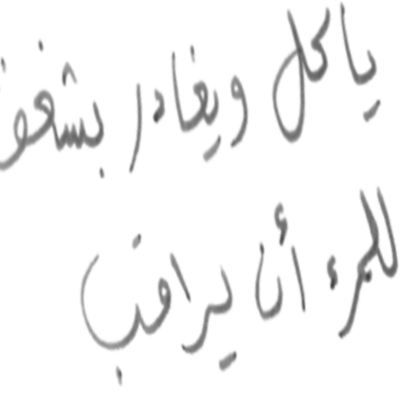 ياكل ويغادر بشغف
للمرء أن يراقب